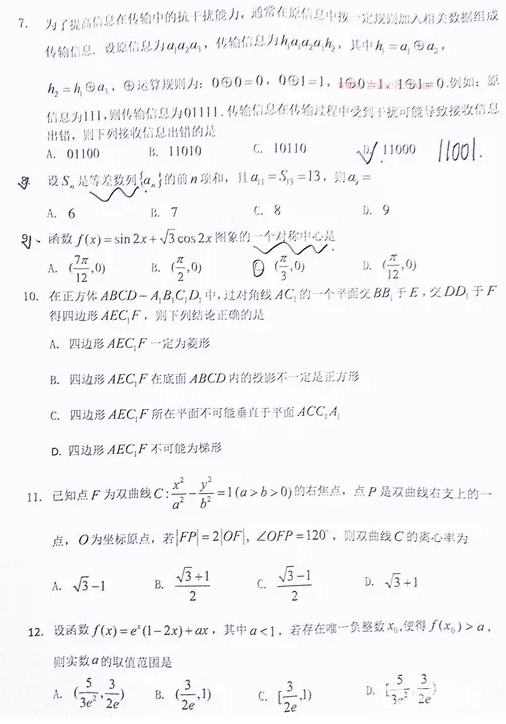 7. 为了提高信息在传输中的抗干扰能力，通常在原信息中按一定规则加入相关数据组成
传输信息. 设原信息为a₁a₂a₃，传输信息为h₁a₁a₂a₃h₂，其中h₁ = a₁⊕a₂，
h₂ = h₁⊕a₃，⊕运算规则为：0⊕0 = 0，0⊕1 = 1，1⊕0 = 1，1⊕1 = 0.例如：原
信息为111,则传输信息为01111. 传输信息在传输过程中受到干扰可能导致接收信息
出错，则下列接收信息出错的是
A. 01100 B. 11010 C. 10110 D. 11000 11001.
8. 设Sₙ是等差数列{aₙ}的前n项和，且a₁₁ = S₁₃ = 13，则a₉ =
A. 6 B. 7 C. 8 D. 9
9. 函数 f(x) = sin 2x + √3 cos 2x 图象的一个对称中心是
A. (7π/12,0) B. (π/2,0) C. (π/3,0) D. (π/12,0)
10. 在正方体ABCD − A₁B₁C₁D₁中,过对角线AC₁的一个平面交BB₁于E，交DD₁于F
得四边形AEC₁F，则下列结论正确的是
A. 四边形AEC₁F一定为菱形
B. 四边形AEC₁F在底面ABCD内的投影不一定是正方形
C. 四边形AEC₁F所在平面不可能垂直于平面ACC₁A₁
D. 四边形AEC₁F不可能为梯形
11. 已知点F为双曲线C: x²/a² − y²/b² = 1(a > b > 0)的右焦点，点P是双曲线右支上的一
点，O为坐标原点，若|FP| = 2|OF|, ∠OFP = 120°，则双曲线C的离心率为
A. √3 − 1 B. (√3+1)/2 C. (√3−1)/2 D. √3 + 1
12. 设函数f(x) = eˣ(1 − 2x) + ax，其中a < 1，若存在唯一负整数x₀,使得f(x₀) > a，
则实数a的取值范围是
A. (5/3e², 3/2e) B. (3/2e,1) C. [3/2e,1) D. [5/3e², 3/2e)